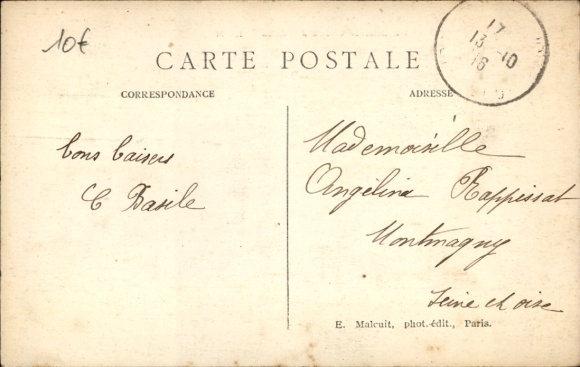 10€
17
13-10
16
CARTE POSTALE
CORRESPONDANCE
ADRESSE
bons baisers
C Basile
Mademoiselle
Angélina Rappissat
Montmagny
Seine et oise
E. Malcuit, phot.-édit., Paris.